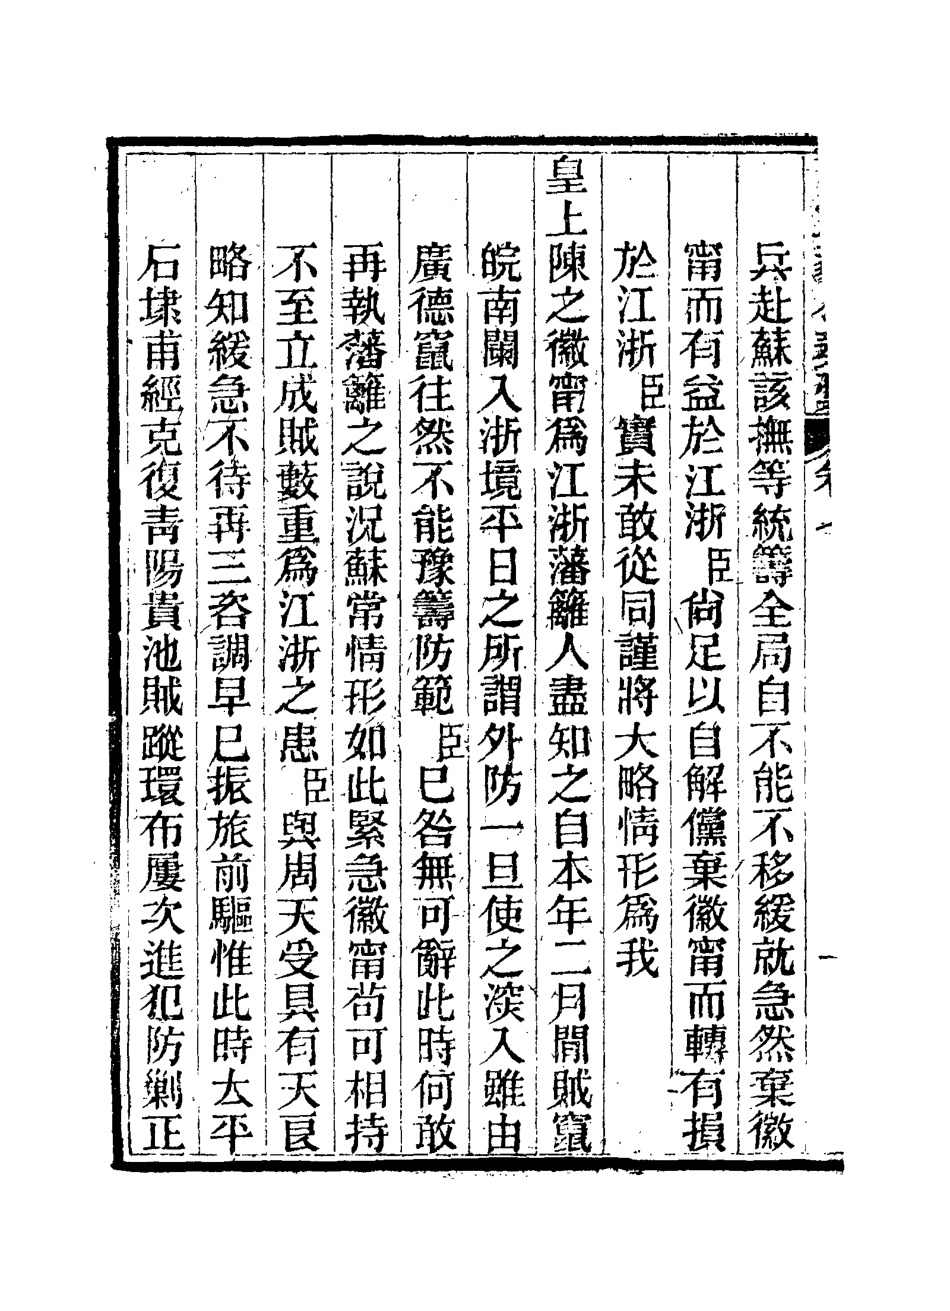 兵赴蘇該撫等統籌全局自不能不移緩就急然棄徽
甯而有益於江浙臣尙足以自解儻棄徽甯而轉有損
於江浙臣實未敢從同謹將大略情形爲我
皇上陳之徽甯爲江浙藩籬人盡知之自本年二月間賊竄
皖南闌入浙境平日之所謂外防一旦使之深入雖由
廣德竄往然不能豫籌防範臣已咎無可辭此時何敢
再執藩籬之說況蘇常情形如此緊急徽甯苟可相持
不至立成賊藪重爲江浙之患臣與周天受具有天良
略知緩急不待再三咨調早已振旅前驅惟此時太平
石埭甫經克復青陽貴池賊蹤環布屢次進犯防剿正